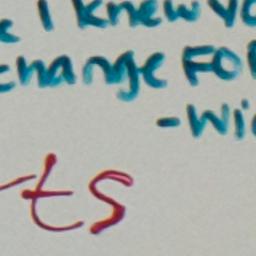 I knew
change FO
-Wi
ts